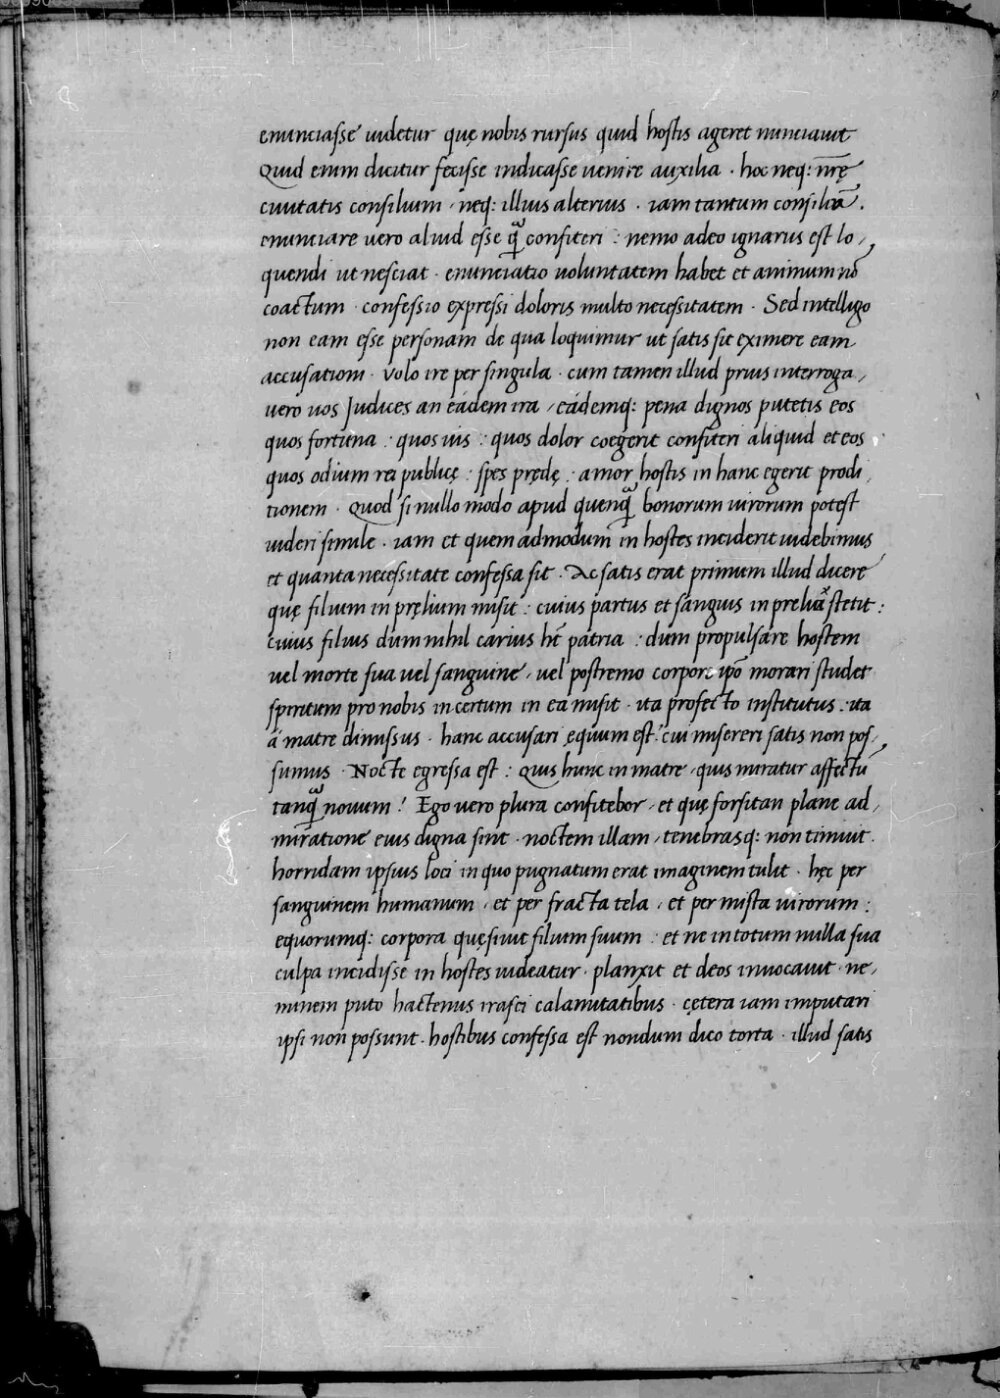 enunciasse uidetur quę nobis rursus quid hostis ageret nunciauit
Quid enim dicitur fecisse indicasse uenire auxilia · hoc neq: nr̄ę
ciuitatis consilium · neq: illius alterius · iam tantum consilia.
enunciare uero aliud esse q̃ confiteri : nemo adeo ignarus est lo,
quendi ut nesciat · enunciatio uoluntatem habet et animum nō
coactum · confessio expressi doloris multo necessitatem · Sed intelligo
non eam esse personam de qua loquimur ut satis sit eximere eam
accusationi · volo ire per singula · cum tamen illud prius interroga,
uero uos Judices an eádem ira, eádemq: pena dignos putetis eos
quos fortuna : quos uis : quos dolor coegerit confiteri aliquid et eos
quos odium rei publicę : spes prędę : amor hostis in hanc egerit prodi,
tionem · Quod si nullo modo apud quenq̃ bonorum uirorum potest
uideri simile · iam et quem admodum in hostes inciderit uidebimus
et quanta necessitate confessa sit · Ac satis erat primum illud dicere
quę filium in pręlium misit : cuius partus et sanguis in prelia stetit :
cuius filius dum nihil carius hēt patria : dum propulsare hostem
uel morte sua uel sanguine, uel postremo corpore ipō morari studet
spiritum pro nobis incertum in ea misit · ita profecto institutus : ita
á matre dimissus · hanc accusari ęquum est : cui misereri satis non pos,
sumus · Nocte egressa est : Quis hunc in matre, quis miratur affectū
tanq̃ nouum ! Ego uero plura confitebor, et quę forsitan plane ad,
miratione eius digna sint · noctem illam, tenebrasq: non timuit ·
horridam ipsius loci in quo pugnatum erat imaginem tulit · hęc per
sanguinem humanum, et per fracta tela, et per mista uirorum :
equorumq: corpora quęsiuit filium suum : et ne in totum nulla sua
culpa incidisse in hostes uideatur · planxit et deos inuocauit · ne,
minem puto hactenus irasci calamitatibus · cętera iam imputari
ipsi non possunt · hostibus confessa est nondum dico torta · illud satis